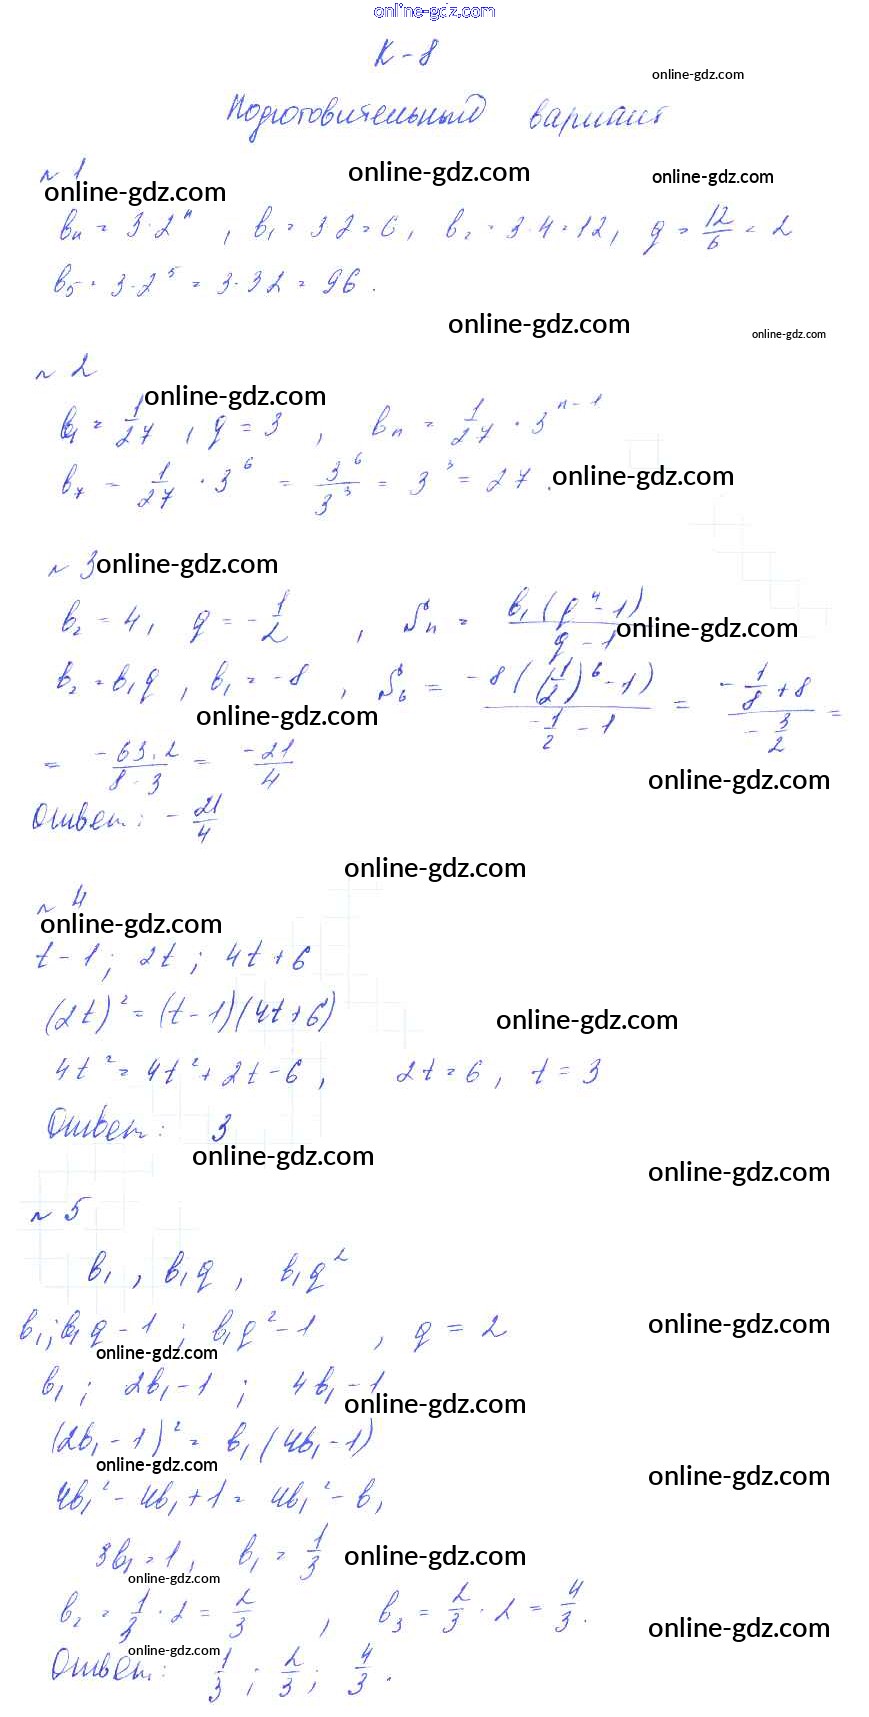 online-gdz.com
К-8
online-gdz.com
Подготовительный вариант
№ 1
online-gdz.com online-gdz.com online-gdz.com
bₙ = 3·2ⁿ, b₁ = 3·2 = 6, b₂ = 3·4 = 12, q = 12/6 = 2
b₅ = 3·2⁵ = 3·32 = 96.
online-gdz.com online-gdz.com
№ 2
online-gdz.com
b₁ = 1/27, q = 3, bₙ = 1/27 · 3ⁿ⁻¹
b₇ = 1/27 · 3⁶ = 3⁶/3³ = 3³ = 27. online-gdz.com
№ 3 online-gdz.com
b₂ = 4, q = -1/2, Sₙ = b₁(qⁿ-1)/(q-1) online-gdz.com
b₂ = b₁q, b₁ = -8, S₆ = -8((1/2)⁶-1)/(-1/2 - 1) = (-1/8 + 8)/(-3/2) =
online-gdz.com
= -63·2/(8·3) = -21/4
online-gdz.com
Ответ: -21/4
online-gdz.com
№ 4
online-gdz.com
t-1; 2t; 4t+6
(2t)² = (t-1)(4t+6)
online-gdz.com
4t² = 4t² + 2t - 6, 2t = 6, t = 3
Ответ: 3
online-gdz.com online-gdz.com
№ 5
b₁, b₁q, b₁q²
b₁; b₁q-1; b₁q²-1, q = 2 online-gdz.com
online-gdz.com
b₁; 2b₁-1; 4b₁-1
online-gdz.com
(2b₁-1)² = b₁(4b₁-1)
online-gdz.com online-gdz.com
4b₁² - 4b₁ + 1 = 4b₁² - b₁
3b₁ = 1, b₁ = 1/3 online-gdz.com
online-gdz.com
b₂ = 1/3 · 2 = 2/3, b₃ = 2/3 · 2 = 4/3.
online-gdz.com online-gdz.com
Ответ: 1/3; 2/3; 4/3.